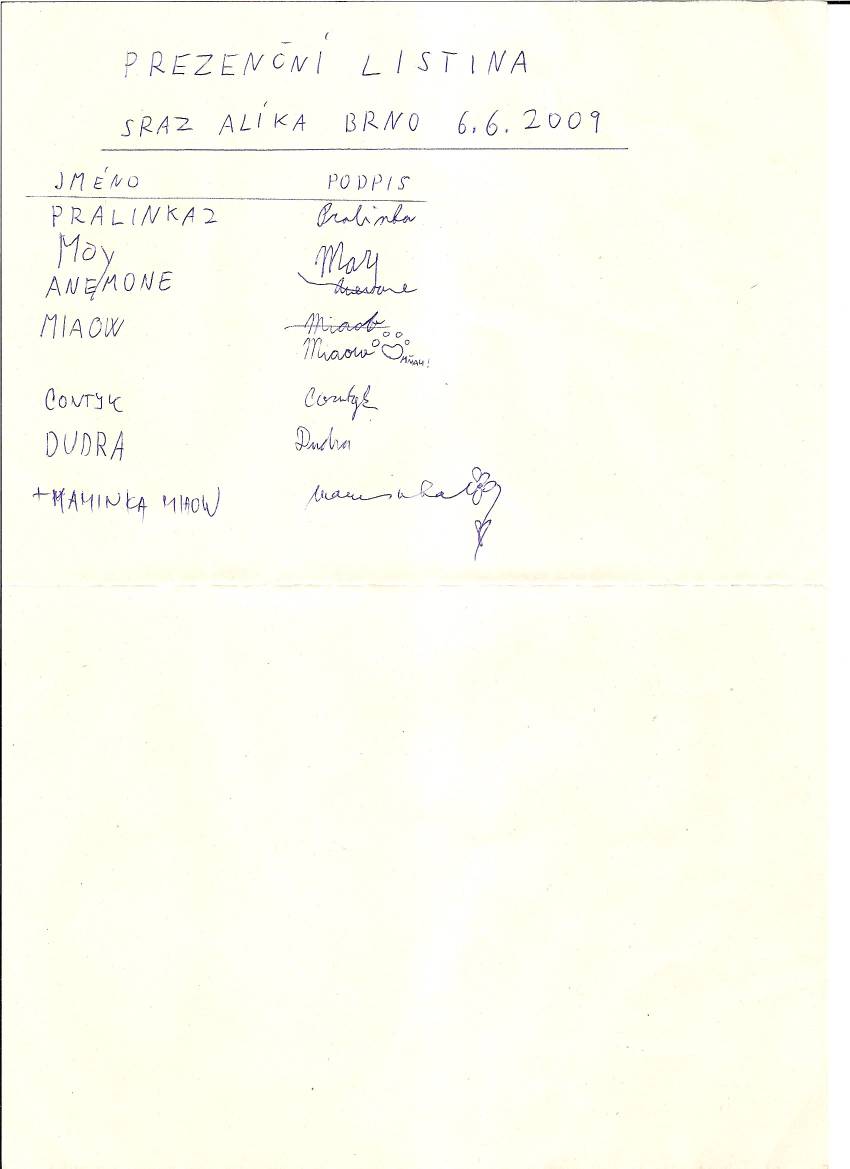 PREZENČNÍ LISTINA
SRAZ ALÍKA BRNO 6.6.2009
JMÉNO PODPIS
PRALINKA2 Pralinka
May May
ANEMONE Anemone
MIAOW Miaow
Miaow MŇAU!
CONTYK Contyk
DUDRA Dudra
+MAMINKA MIAOW maminka